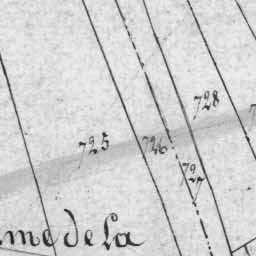 728
725
726
727
me de la